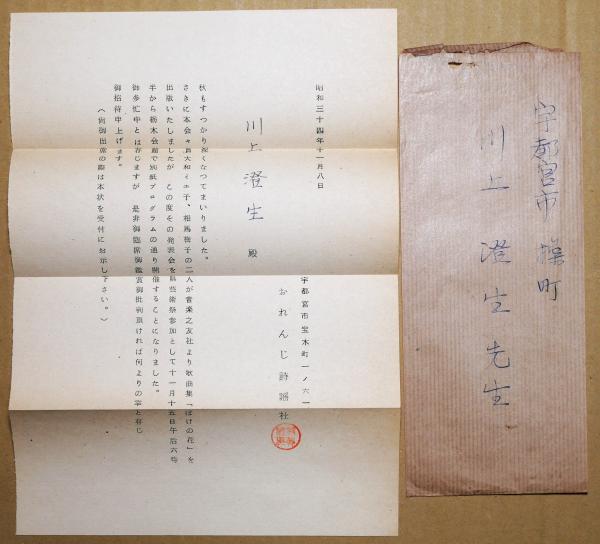 昭和三十四年十一月八日
宇都宮市宝木町一ノ六一
おれんじ詩謡社
川上澄生 殿
秋もすつかり深くなつてまいりました。
さきに本会々員大和ミエ子、相馬梅子の二人が音楽之友社より歌曲集「ぼけの花」を
出版いたしましたが この度その発表会を県芸術祭参加として十一月十五日午后六時
半から栃木会館で別紙プログラムの通り開催することになりました。
御多忙中とは存じますが 是非御臨席御鑑賞御批判頂ければ何よりの幸と存じ
御招待申上げます。
(尚御出席の際は本状を受付にお示し下さい。)
宇都宮市 操町
川上澄生先生